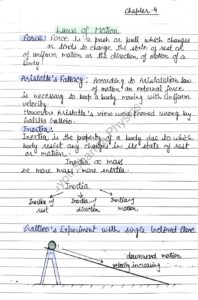 Chapter-4
Laws of Motion
Force: Force is a push or pull which changes
or tends to change the state of rest or
of uniform motion or the direction of motion of a
body.
Aristotle's Fallacy: According to Aristotelian law
of motion an external force
is necessary to keep a body moving with uniform
velocity.
However Aristotle's view were proved wrong by
Galileo Galilei.
Inertia:
Inertia is the property of a body due to which
body resist any changes in its state of rest
or motion.
Inertia ∝ mass
ie more mass - more inertia.
Inertia
Inertia of rest
Inertia of direction
Inertia of motion
Galileo's Experiment with single inclined plane
downward motion
velocity increasing